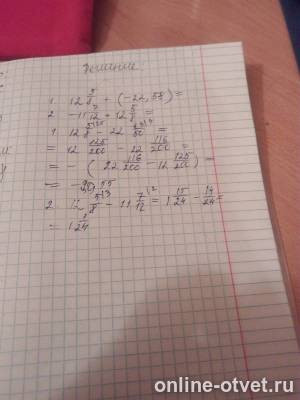 Решение
1. 12 5/8 + (-22,58) =
2. -11 7/12 + 12 5/8 =
1. 12 5/8 - 22 /50 =
= 12 125/200 - 22 116/200 =
= - (22 116/200 - 12 125/200) =
= -
2. 12 5/8 - 11 7/12 = 1 15/24 - 14/24 =
= 1 1/24
online-otvet.ru